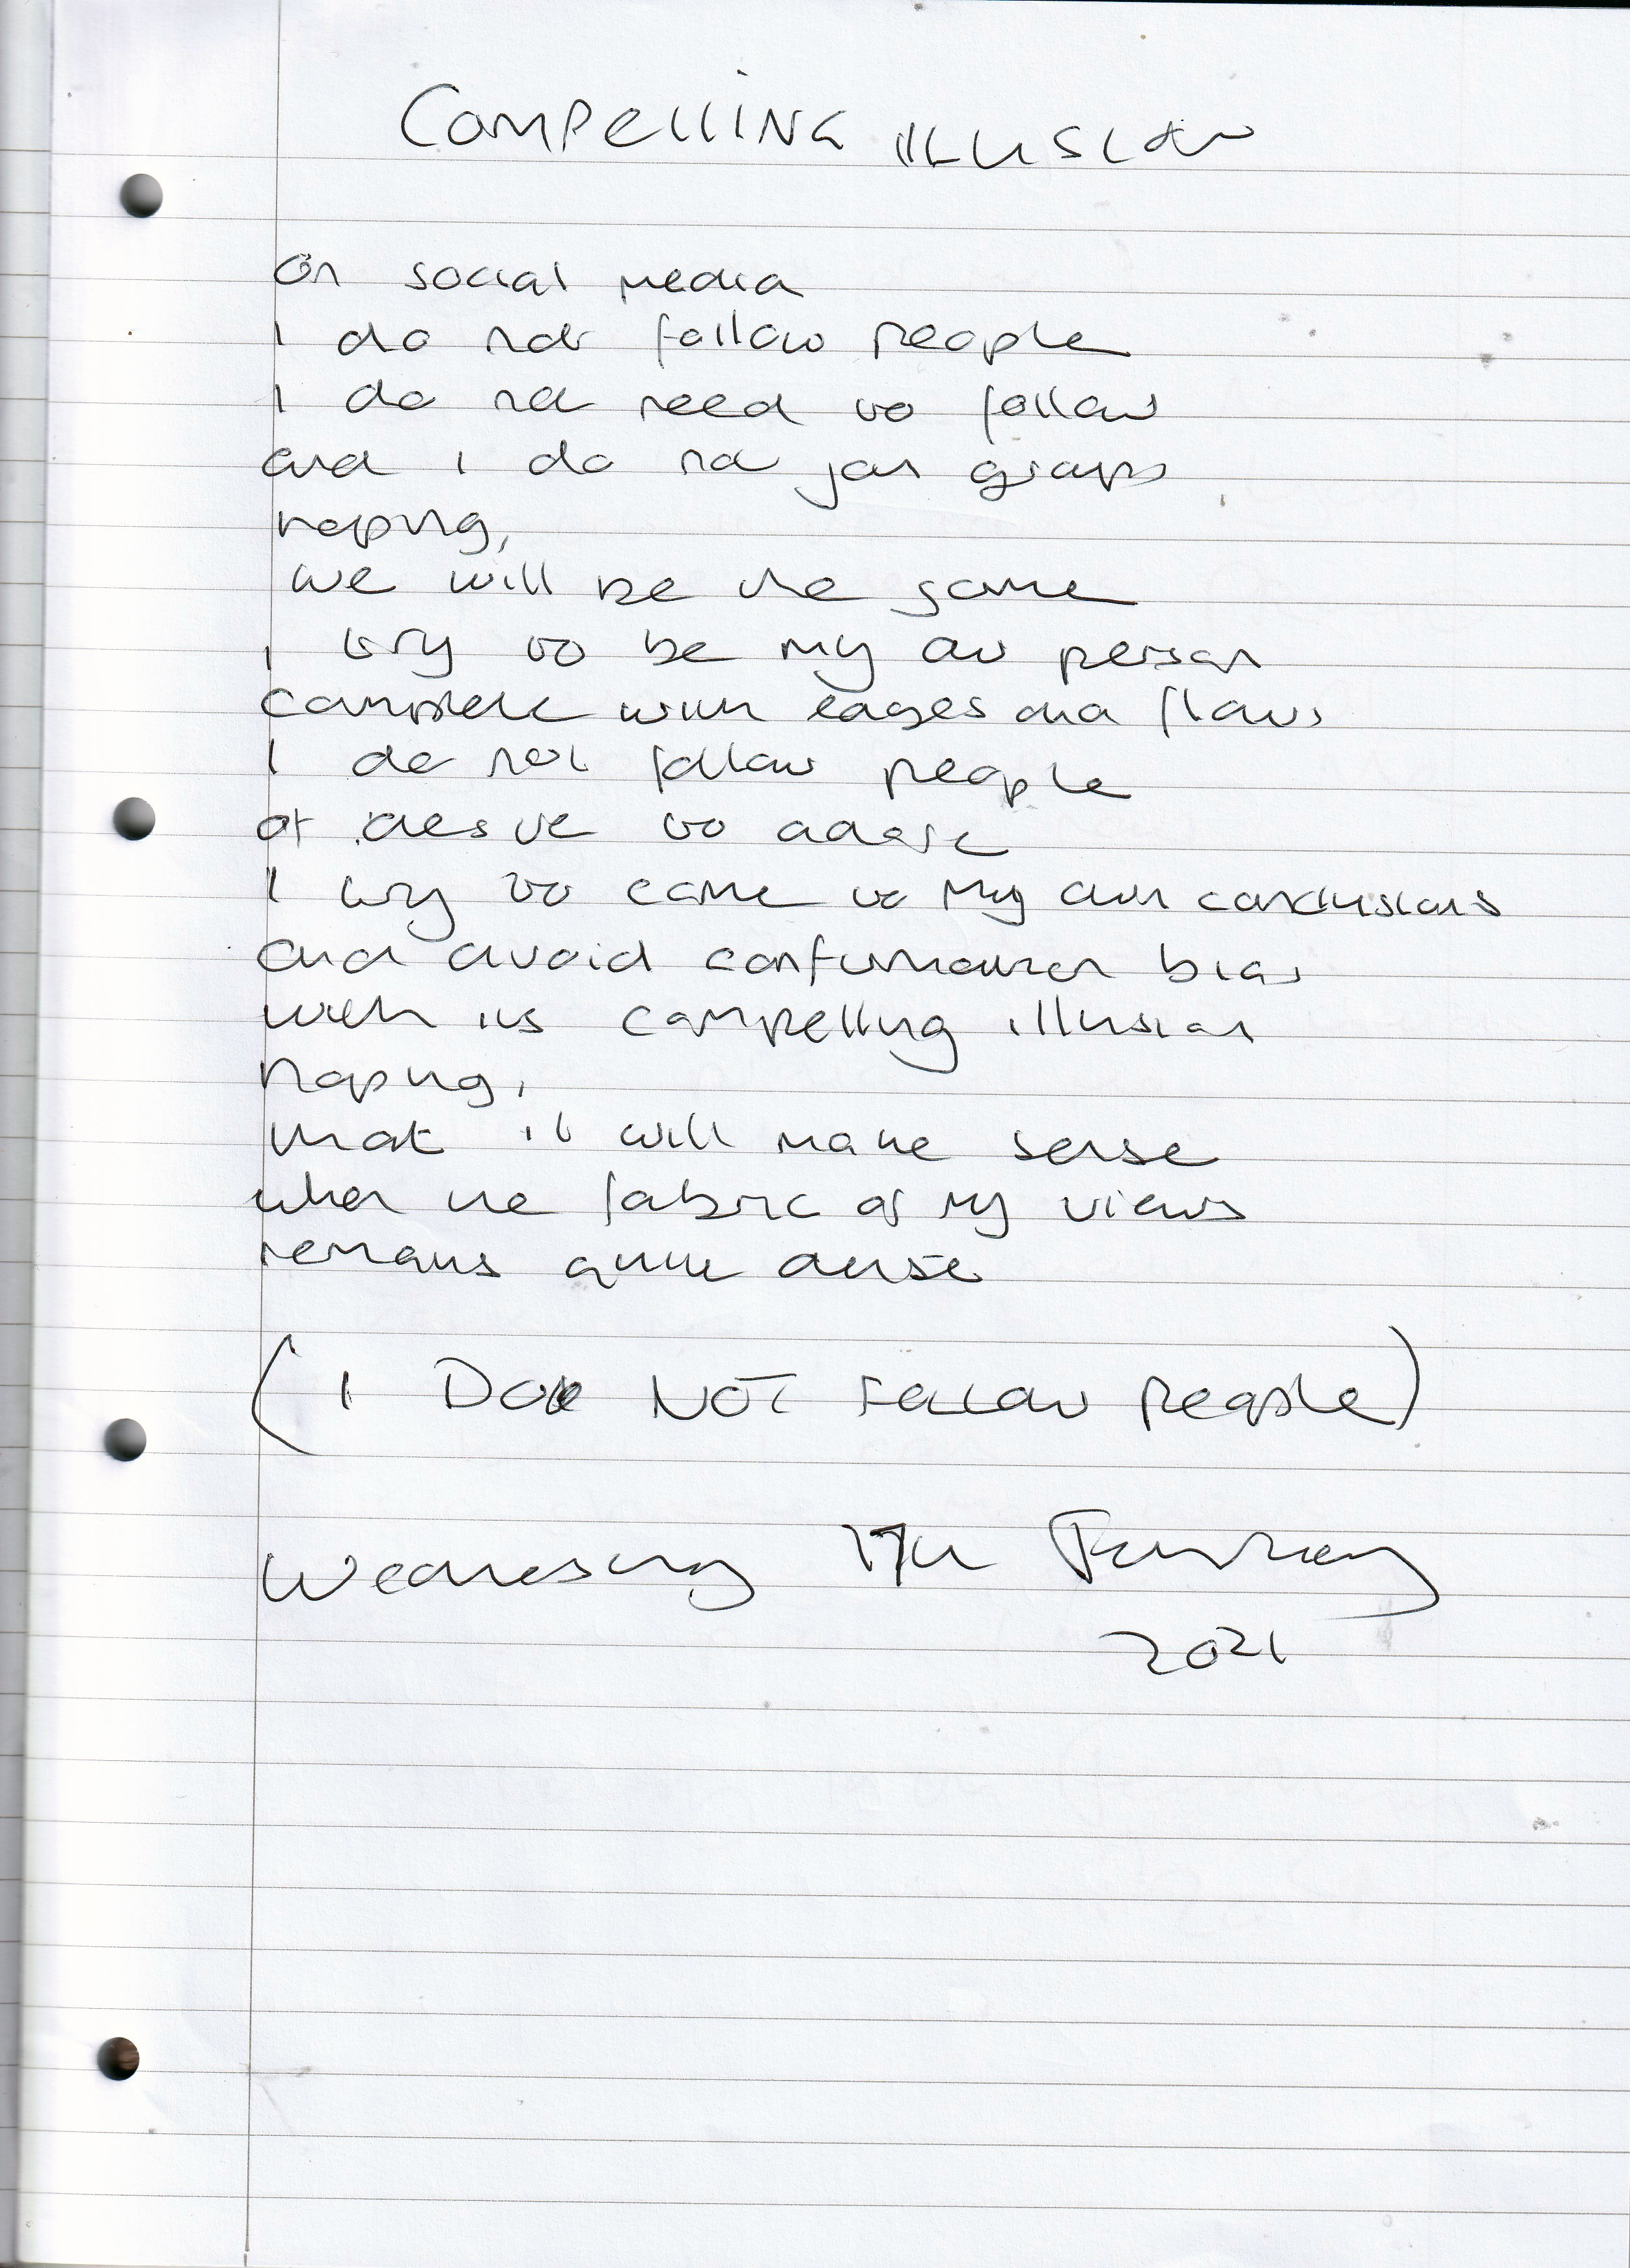 COMPELLING ILLUSION
On social media
I do not follow people
I do not need to follow
and I do not join groups
hoping,
we will be the same
I try to be my own person
complete with edges and flaws
I do not follow people
or desire to adore
I try to come to my own conclusions
and avoid confirmation bias
with its compelling illusion
hoping,
that it will make sense
when the fabric of my views
remains quite dense
(I DO NOT FOLLOW PEOPLE)
Wednesday 17th February
2021